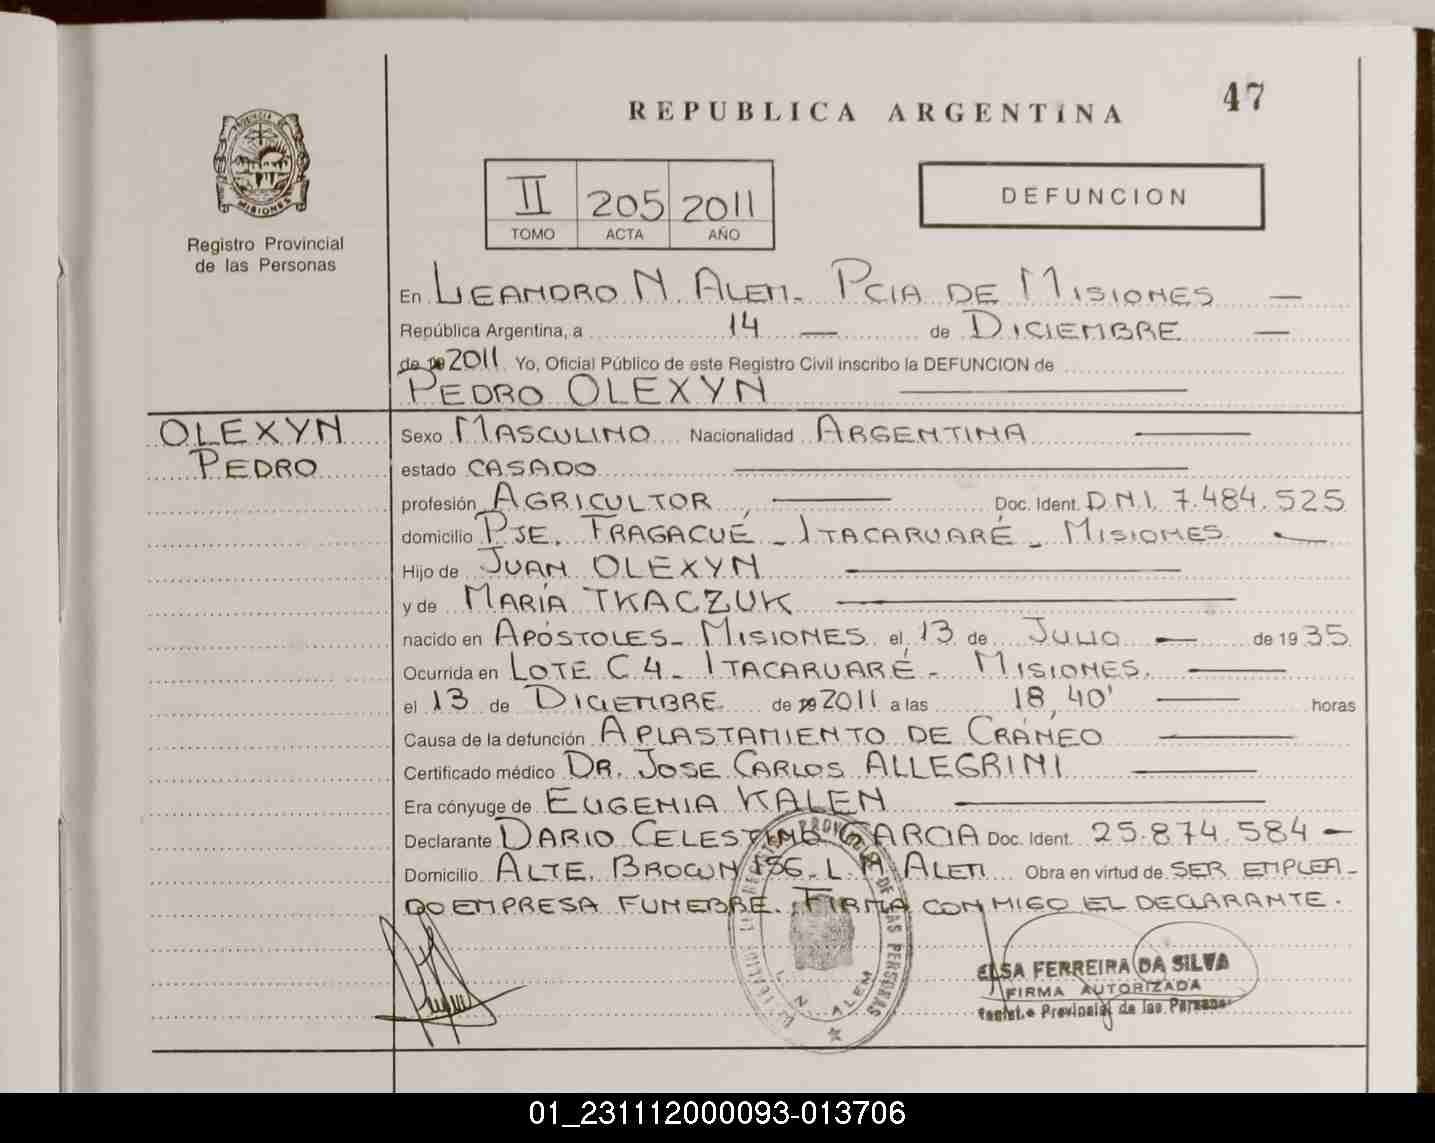 47
REPUBLICA ARGENTINA
PROVINCIA DE
MISIONES
Registro Provincial
de las Personas
II 205 2011
TOMO ACTA AÑO
DEFUNCION
En LEANDRO N. ALEM - PCIA DE MISIONES —
República Argentina, a 14 — de DICIEMBRE —
de 19 2011 Yo, Oficial Público de este Registro Civil inscribo la DEFUNCION de
PEDRO OLEXYN
OLEXYN
PEDRO
Sexo MASCULINO Nacionalidad ARGENTINA
estado CASADO
profesión AGRICULTOR Doc. Ident. D.N.I. 7.484.525
domicilio PJE. FRAGACUÉ - ITACARUARÉ - MISIONES
Hijo de JUAN OLEXYN
y de MARÍA TKACZUK
nacido en APÓSTOLES - MISIONES el 13 de JULIO — de 19 35
Ocurrida en LOTE C 4 - ITACARUARÉ - MISIONES.
el 13 de DICIEMBRE de 19 2011 a las 18,40' horas
Causa de la defunción APLASTAMIENTO DE CRÁNEO
Certificado médico DR. JOSE CARLOS ALLEGRINI
Era cónyuge de EUGENIA KALEN
Declarante DARIO CELESTINO GARCIA Doc. Ident. 25.874.584 —
Domicilio ALTE. BROWN 156 - L. N. ALEM Obra en virtud de SER EMPLEA-
DO EMPRESA FUNEBRE. FIRMA CONMIGO EL DECLARANTE.
DE LAS PERSONAS
L. N. ALEM
ELSA FERREIRA DA SILVA
FIRMA AUTORIZADA
Provincial de las Personas
01_231112000093-013706